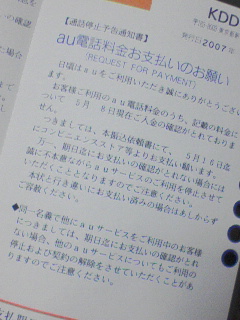 KDD
2007年
【通話停止予告通知書】
au電話料金お支払いのお願い
(REQUEST FOR PAYMENT)
日頃はauをご利用いただき誠にありがとうござい
ます。
お客様ご利用のau電話料金のうち、記載の料金に
ついて 5月 8日現在ご入金の確認がとれておりま
せん。
つきましては、本振込依頼書にて、 5月18日迄
にコンビニエンスストア等よりお支払い願います。
万一、期日迄にお支払いの確認がとれない場合には
誠に不本意ながらauサービスのご利用を停止させて
いただくこととなりますのでご注意ください。
本状と行き違いにお支払い済みの場合はあしからず
ご容赦ください。
◆同一名義で他にauサービスをご利用中のお客様
につきましては、期日迄にお支払いの確認がとれ
ない場合、他のauサービスについてもご利用の
停止および契約の解除をさせていただくことがあ
りますのでご注意ください。